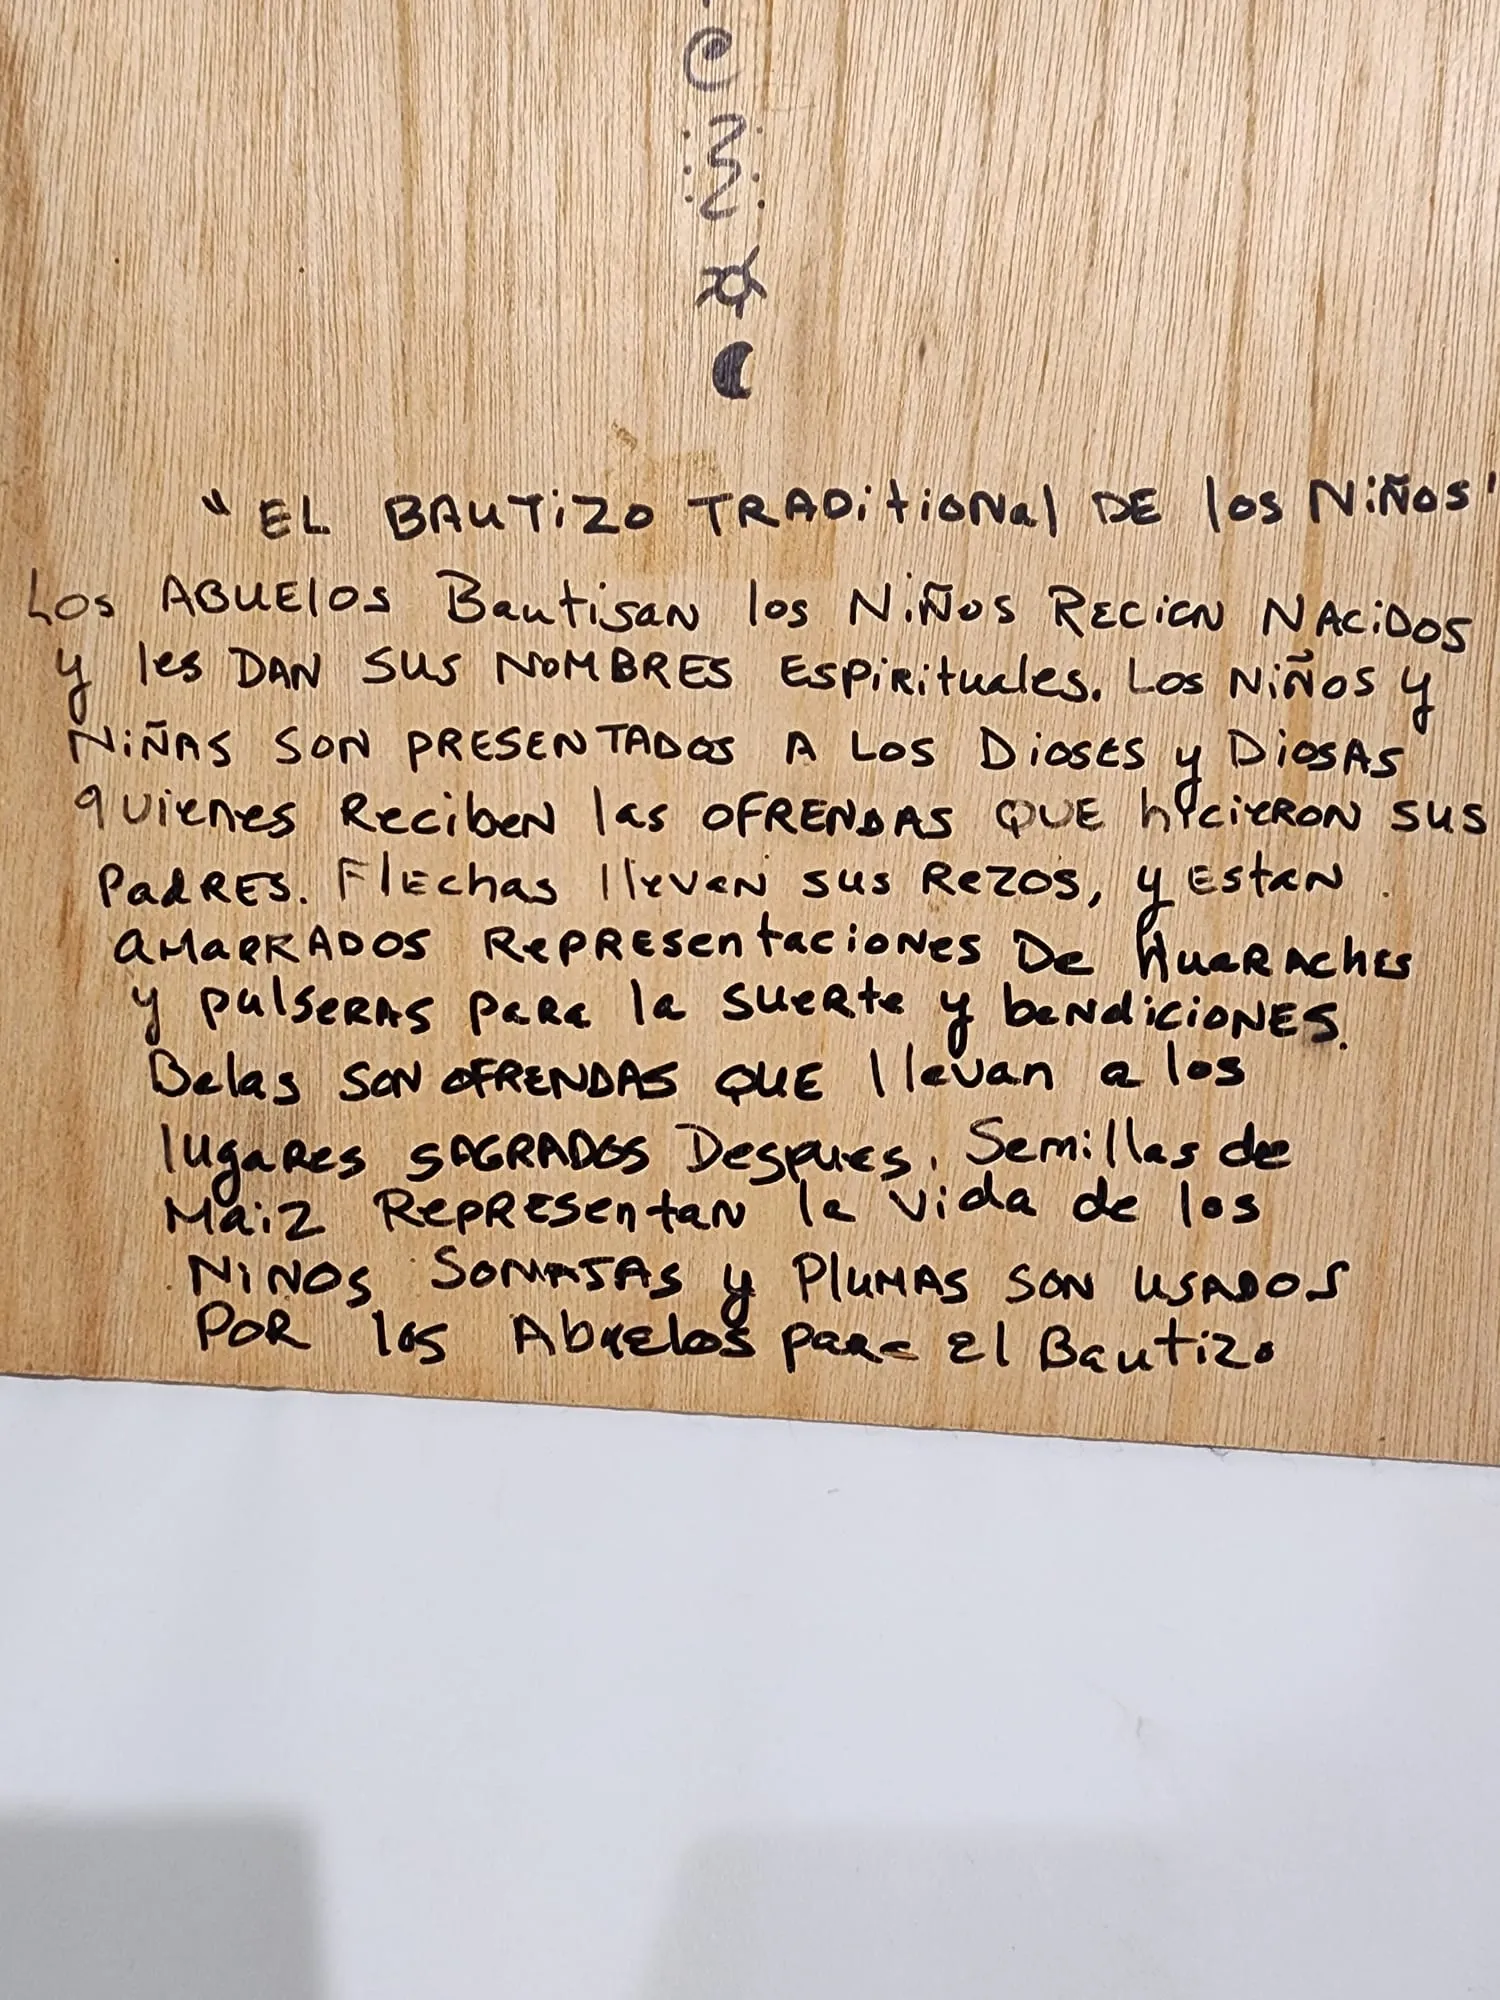 "EL BAUTIZO TRADITIONAL DE los NIÑOS"
Los ABUELOS Bautisan los NIÑOS RECIEN NACIDOS
y les DAN SUS NOMBRES ESPIRITUALES. Los NIÑOS y
NIÑAS SON PRESENTADOS A LOS DIOSES y DIOSAS
quienes Reciben las OFRENDAS QUE hicieron SUS
PadRES. Flechas llevan sus Rezos, y Estan
amarrados Representaciones De Huaraches
y pulseras para la suerte y bendiciones.
Belas SON OFRENDAS QUE llevan a los
lugares SAGRADOS Despues. Semillas de
Maiz Representan la vida de los
NINOS SONAJAS y PLUMAS SON USADOS
POR los Abuelos para El Bautizo